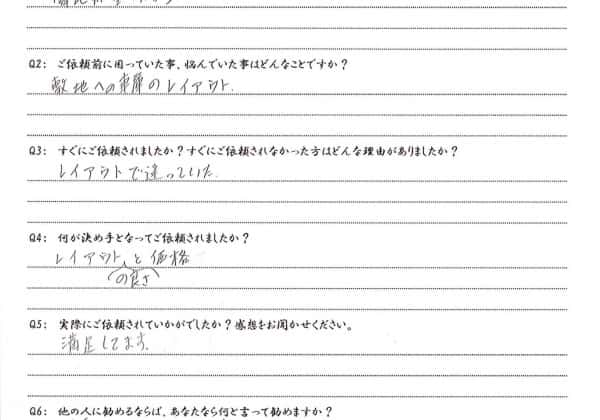 Q2: ご依頼前に困っていた事、悩んでいた事はどんなことですか？
敷地への車庫のレイアウト.
Q3: すぐにご依頼されましたか？すぐにご依頼されなかった方はどんな理由がありましたか？
レイアウトで迷っていた.
Q4: 何が決め手となってご依頼されましたか？
レイアウトと価格
の良さ
Q5: 実際にご依頼されていかがでしたか？感想をお聞かせください。
満足してます.
Q6: 他の人に勧めるならば、あなたなら何と言って勧めますか？